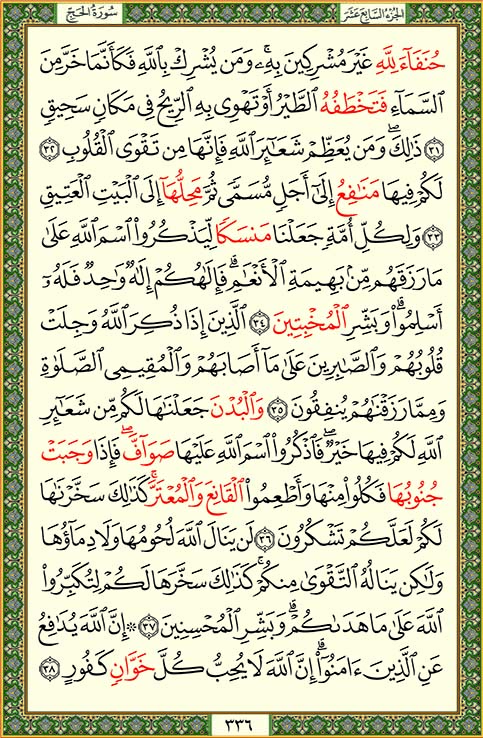 سُورَةُ الحَجِّ الجُزءُ السَّابِعُ عَشَرَ
حُنَفَآءَ لِلَّهِ غَيْرَ مُشْرِكِينَ بِهِۦۚ وَمَن يُشْرِكْ بِٱللَّهِ فَكَأَنَّمَا خَرَّ مِنَ
ٱلسَّمَآءِ فَتَخْطَفُهُ ٱلطَّيْرُ أَوْ تَهْوِى بِهِ ٱلرِّيحُ فِى مَكَانٍ سَحِيقٍ
٣١ ذَٰلِكَۖ وَمَن يُعَظِّمْ شَعَٰٓئِرَ ٱللَّهِ فَإِنَّهَا مِن تَقْوَى ٱلْقُلُوبِ ٣٢
لَكُمْ فِيهَا مَنَٰفِعُ إِلَىٰٓ أَجَلٍ مُّسَمًّى ثُمَّ مَحِلُّهَآ إِلَى ٱلْبَيْتِ ٱلْعَتِيقِ
٣٣ وَلِكُلِّ أُمَّةٍ جَعَلْنَا مَنسَكًا لِّيَذْكُرُوا۟ ٱسْمَ ٱللَّهِ عَلَىٰ
مَا رَزَقَهُم مِّنۢ بَهِيمَةِ ٱلْأَنْعَٰمِۗ فَإِلَٰهُكُمْ إِلَٰهٌ وَٰحِدٌ فَلَهُۥٓ
أَسْلِمُوا۟ۗ وَبَشِّرِ ٱلْمُخْبِتِينَ ٣٤ ٱلَّذِينَ إِذَا ذُكِرَ ٱللَّهُ وَجِلَتْ
قُلُوبُهُمْ وَٱلصَّٰبِرِينَ عَلَىٰ مَآ أَصَابَهُمْ وَٱلْمُقِيمِى ٱلصَّلَوٰةِ
وَمِمَّا رَزَقْنَٰهُمْ يُنفِقُونَ ٣٥ وَٱلْبُدْنَ جَعَلْنَٰهَا لَكُم مِّن شَعَٰٓئِرِ
ٱللَّهِ لَكُمْ فِيهَا خَيْرٌۖ فَٱذْكُرُوا۟ ٱسْمَ ٱللَّهِ عَلَيْهَا صَوَآفَّۖ فَإِذَا وَجَبَتْ
جُنُوبُهَا فَكُلُوا۟ مِنْهَا وَأَطْعِمُوا۟ ٱلْقَانِعَ وَٱلْمُعْتَرَّۚ كَذَٰلِكَ سَخَّرْنَٰهَا
لَكُمْ لَعَلَّكُمْ تَشْكُرُونَ ٣٦ لَن يَنَالَ ٱللَّهَ لُحُومُهَا وَلَا دِمَآؤُهَا
وَلَٰكِن يَنَالُهُ ٱلتَّقْوَىٰ مِنكُمْۚ كَذَٰلِكَ سَخَّرَهَا لَكُمْ لِتُكَبِّرُوا۟
ٱللَّهَ عَلَىٰ مَا هَدَىٰكُمْۗ وَبَشِّرِ ٱلْمُحْسِنِينَ ٣٧ ۞ إِنَّ ٱللَّهَ يُدَٰفِعُ
عَنِ ٱلَّذِينَ ءَامَنُوٓا۟ۗ إِنَّ ٱللَّهَ لَا يُحِبُّ كُلَّ خَوَّانٍ كَفُورٍ ٣٨
٣٣٦